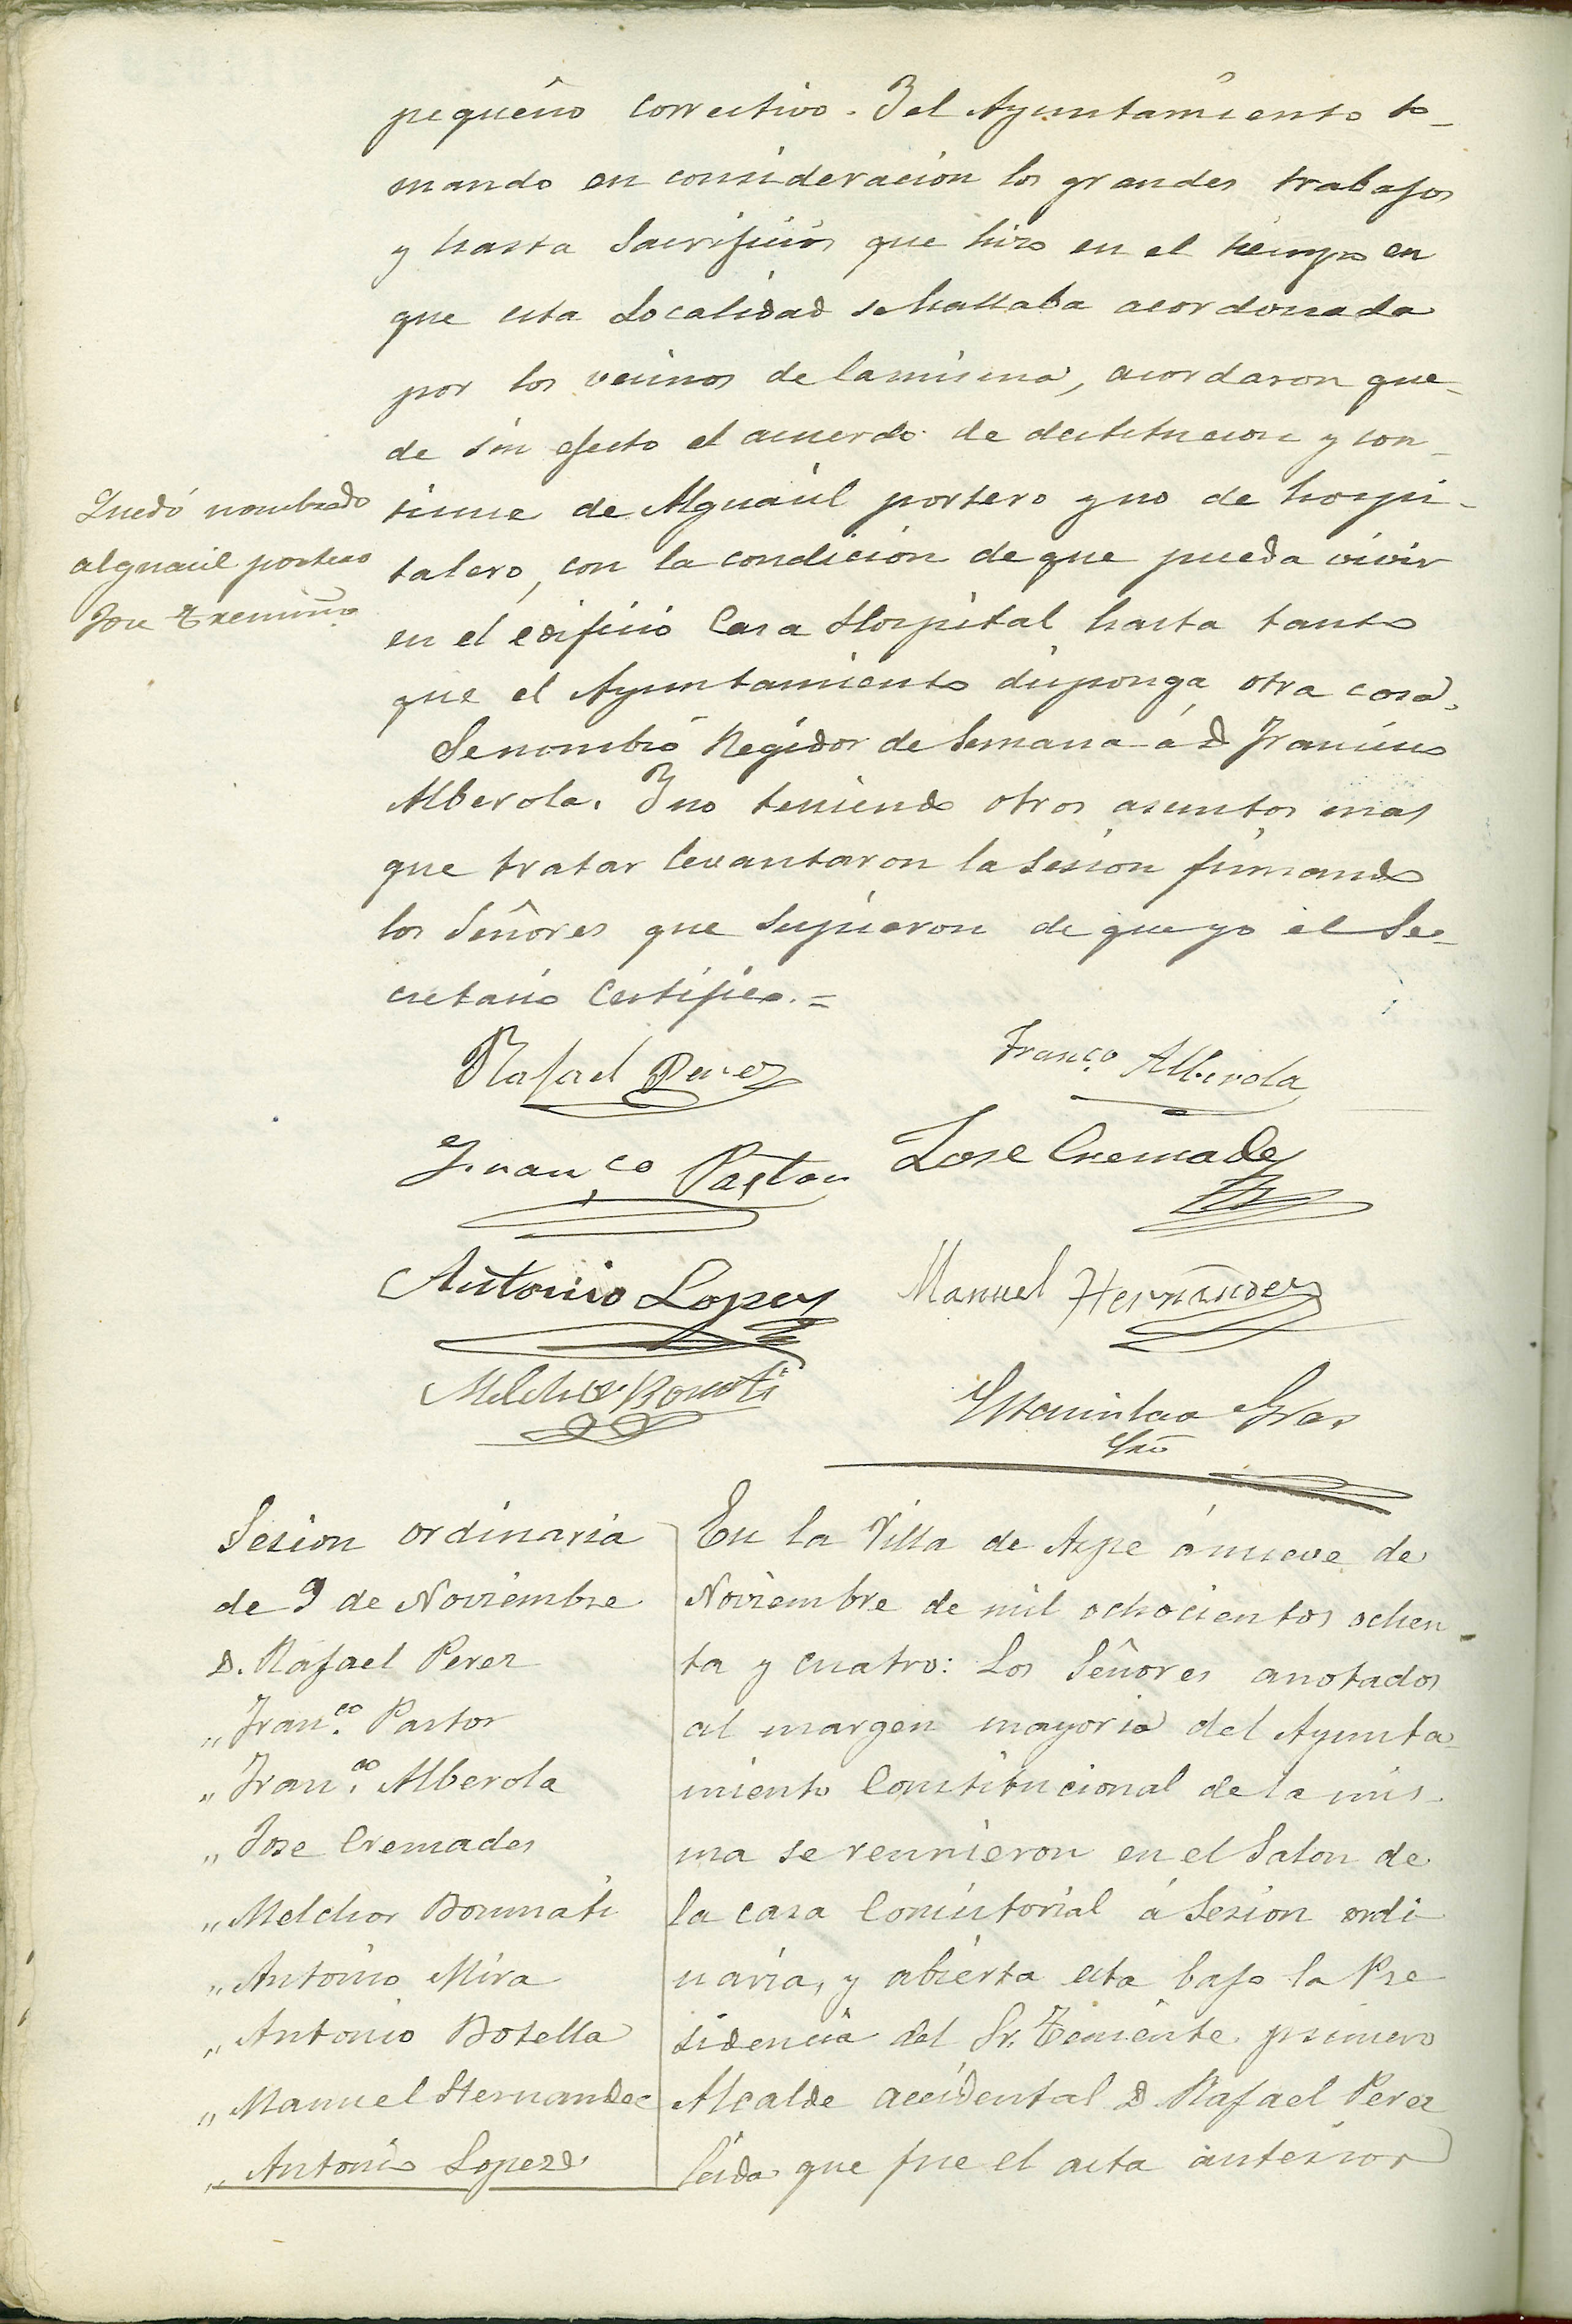 pequeño correctivo. Y el Ayuntamiento to-
mando en consideracion los grandes trabajos
y hasta Sacrificios que hizo en el tiempo en
que esta Localidad se hallaba acordonada
por los vecinos de la misma, acordaron que-
de sin efecto el acuerdo de destitucion y con-
tinue de Alguacil portero y no de hospi-
talero, con la condicion de que pueda vivir
en el edificio Casa Hospital hasta tanto
que el Ayuntamiento disponga otra cosa.
Quedó nombrado
alguacil portero
Jose Tremiño
Se nombró Regidor de Semana á D. Francisco
Alberola. Y no teniendo otros asuntos mas
que tratar levantaron la Sesion firmando
los Señores que supieron de que yo el Se-
cretario Certifico.=
Rafael Perez
Franco. Alberola
Franco Pastor
Jose Cremades
Antonio Lopez
Manuel Hernandez
Melchor Bonmati
Estanislao Gras
Srio
Sesion ordinaria
de 9 de Noviembre
D. Rafael Perez
„ Franco. Pastor
„ Franco. Alberola
„ Jose Cremades
„ Melchor Bonmati
„ Antonio Mira
„ Antonio Botella
„ Manuel Hernandez
„ Antonio Lopez
En la Villa de Aspe á nueve de
Noviembre de mil ochocientos ochen-
ta y cuatro: Los Señores anotados
al margen mayoria del Ayunta-
miento Constitucional de la mis-
ma se reunieron en el Salon de
la casa Consistorial á Sesion ordi
naria, y abierta esta bajo la Pre
sidencia del Sr. Teniente primero
Alcalde accidental D. Rafael Perez
leida que fue el acta anterior